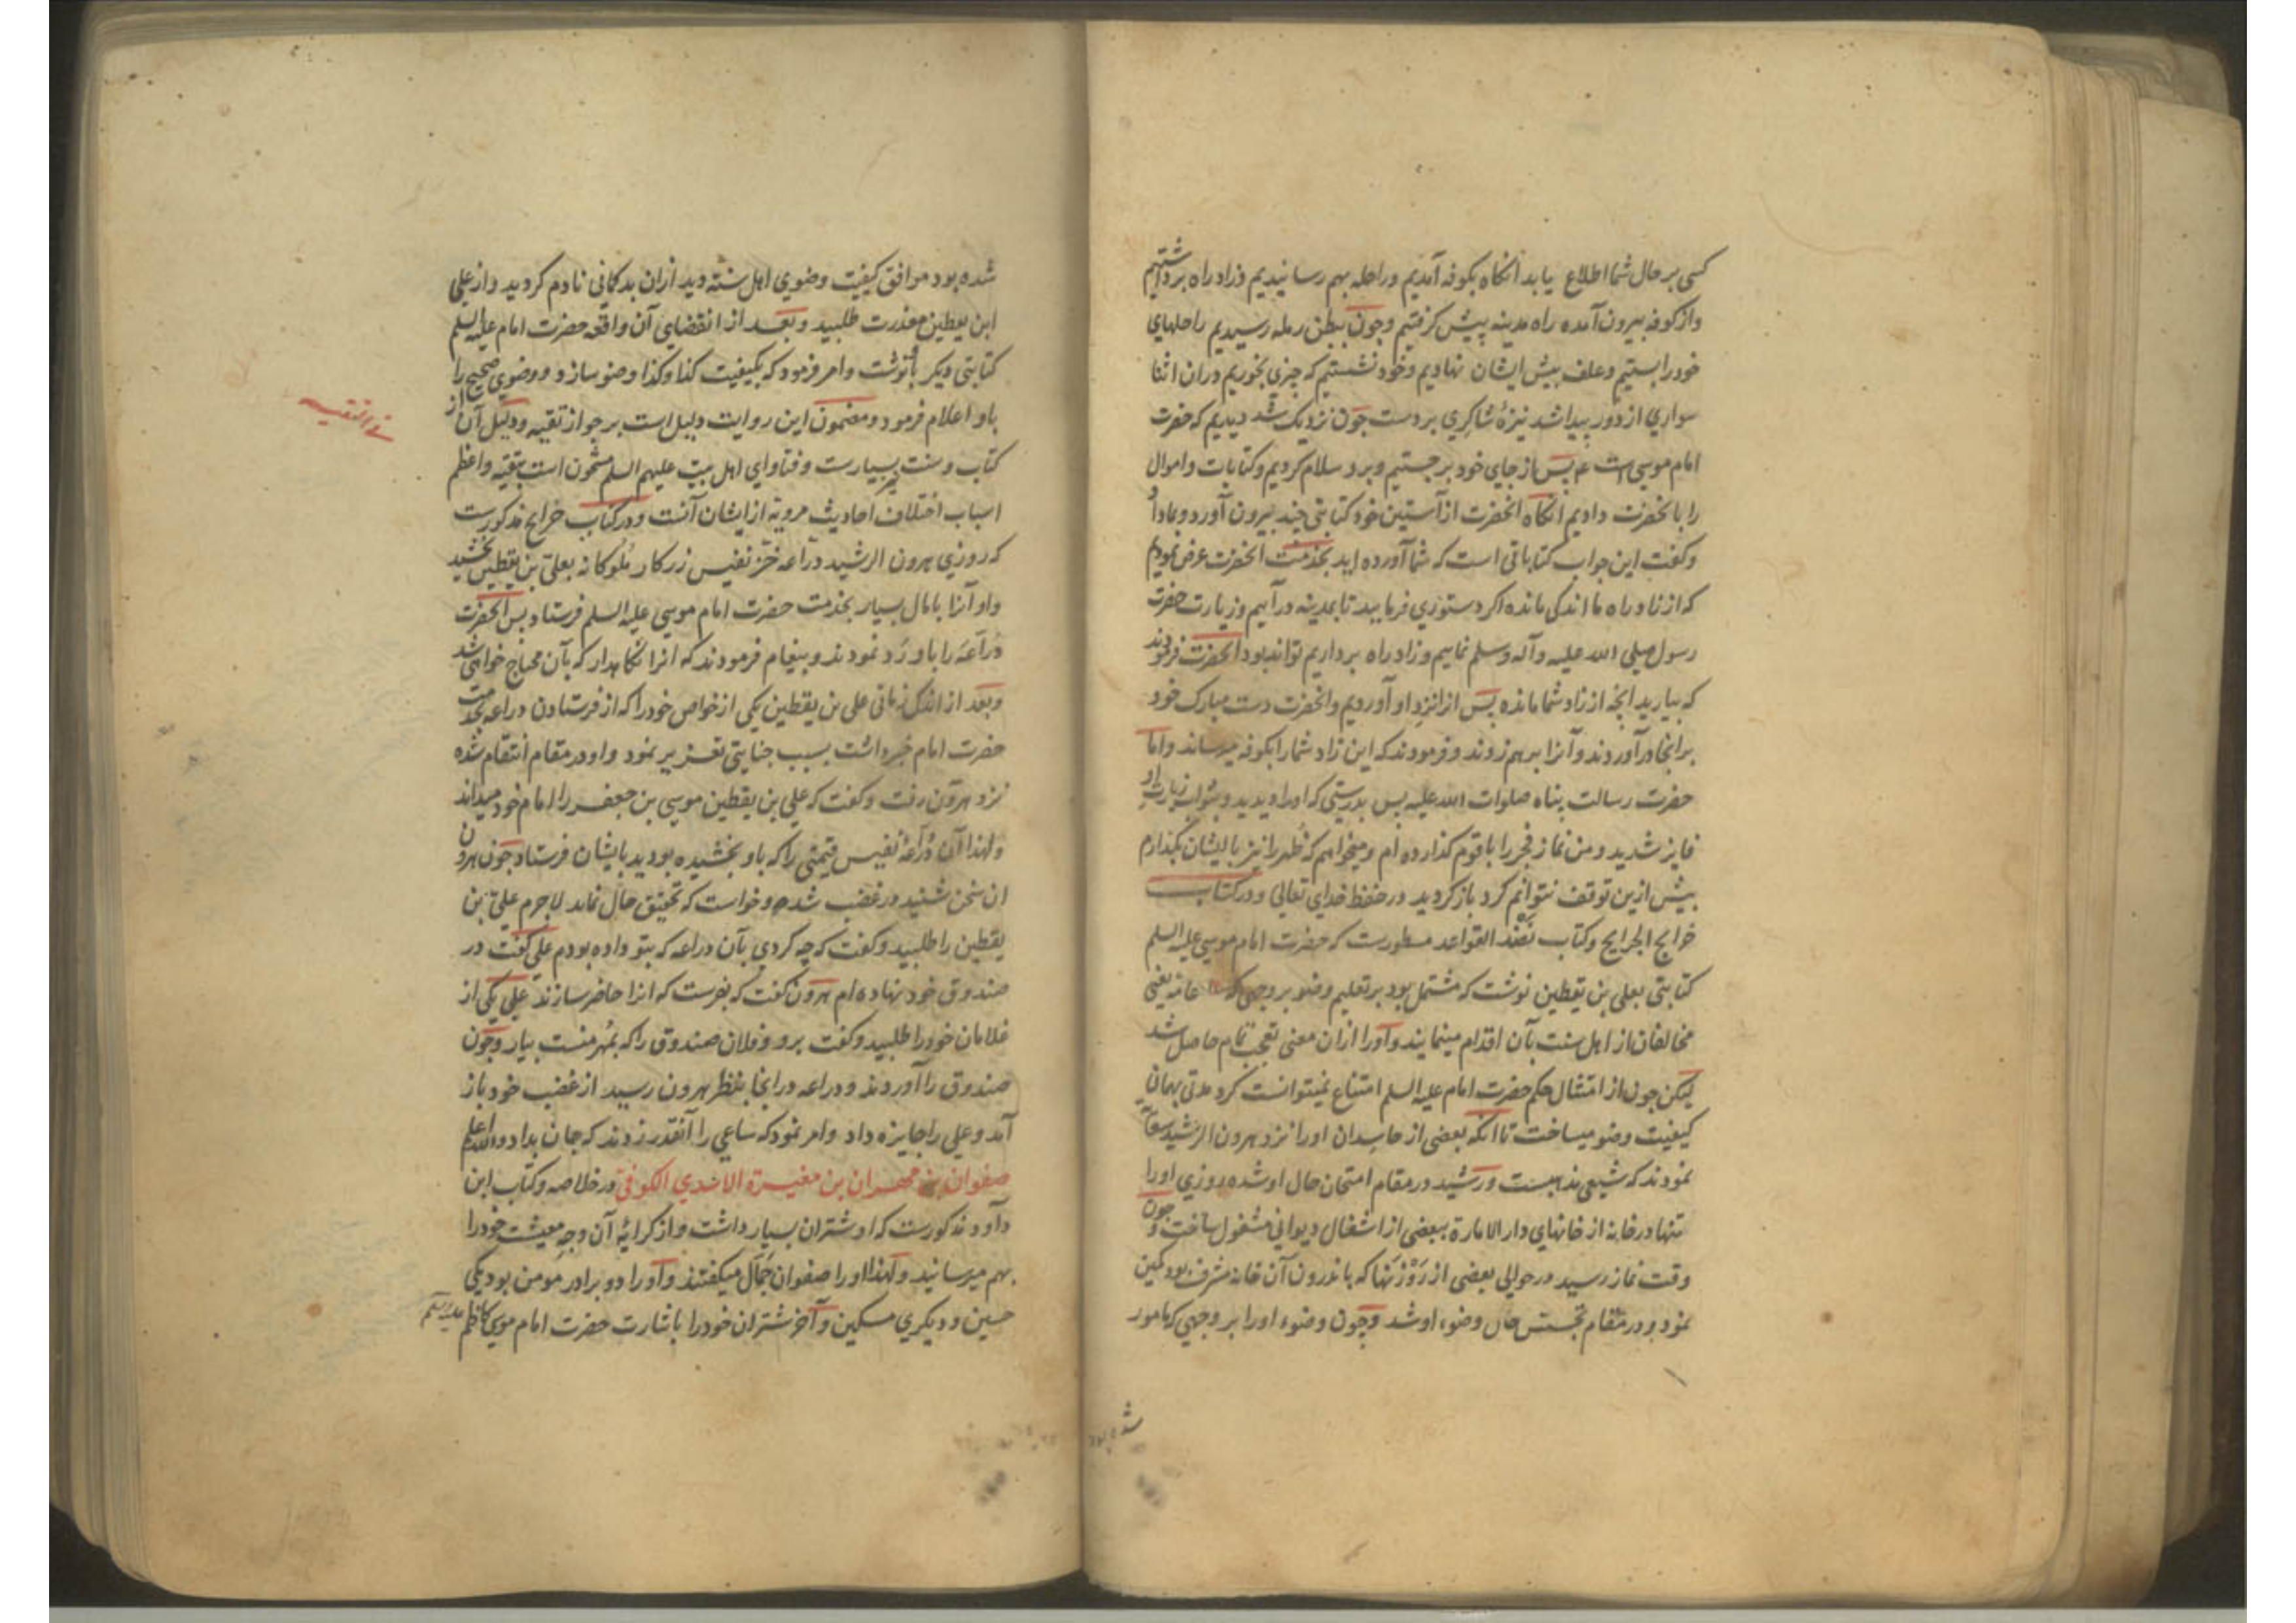 کسی بر حال شما اطلاع یابد انکاه بکوفه آمدیم و راحله بهم رسانیدیم و زاد راه برداشتیم
و از کوفه بیرون آمده راه مدینه پیش کرفتیم و چون ببطن رمله رسیدیم راحلهای
خود را بستیم و علف پیش ایشان نهادیم و خود نشستیم که چیزی بخوریم در ان اثنا
سواری از دور پیدا شد نیزۀ شاکری بر دست چون نزدیک شد دیدیم که حضرت
امام موسی است ع پس از جای خود برجستیم و برو سلام کردیم و کتابات و اموال
را بانحضرت دادیم انکاه انحضرت از آستین خود کتابتی چند بیرون آورد و بما داد
و کفت این جواب کتاباتی است که شما آورده اید بخدمت انحضرت عرض نمودیم
که از زاد راه ما اندکی مانده اکر دستوری فرمایید تا بمدینه در آییم و زیارت حضرت
رسول صلی الله علیه و آله و سلم نماییم و زاد راه برداریم تواند بود انحضرت فرمودند
که بیارید انچه از زاد شما مانده پس انرا نزد او آوردیم و انحضرت دست مبارک خود
بر انجا در آوردند و آنرا برهم زدند و فرمودند که این زاد شما را بکوفه میرساند و اما
حضرت رسالت پناه صلوات الله علیه پس بدرستی که او را دیدید و بثواب زیارت او
فایز شدید و من نماز فجر را با قوم کذارده ام و میخواهم که ظهر را نیز با ایشان بکذارم
بیش ازین توقف نتوانم کرد باز کردید در حفظ خدای تعالی و در کتاب
خرایج الجرایح و کتاب نضد القواعد مسطورست که حضرت امام موسی علیه السلم
کتابتی بعلی بن یقطین نوشت که مشتمل بود بر تعلیم وضو بر وجهی که عامه یعنی
مخالفان از اهل سنت بآن اقدام مینمایند و او را ازان معنی تعجب تمام حاصل شد
لیکن چون از امتثال حکم حضرت امام علیه السلم امتناع نمیتوانست کرد مدتی بهمان
کیفیت وضو میساخت تا انکه بعضی از حاسدان او را نزد هرون الرشید سعایت
نمودند که شیعی مذهبست و رشید در مقام امتحان حال او شده روزی او را
تنها در خانه از خانهای دار الامارة ببعضی از اشغال دیوانی مشغول ساخت و چون
وقت نماز رسید در حوالی بعضی از روزنها که باندرون آن خانه مشرف بود کمین
نمود و در مقام تجسس حال وضوء او شد و چون وضوء او را بر وجهی که مامور
شده بود
شده بود موافق کیفیت وضوی اهل سنته دید ازان بد کمانی نادم کردید و از علی
ابن یقطین معذرت طلبید و بعد از انقضای آن واقعه حضرت امام علیه السلم
کتابتی دیکر باو نوشت و امر فرمود که بکیفیت کذا و کذا وضو سازد و وضوی صحیح را
باو اعلام فرمود و مضمون این روایت دلیل است بر جواز تقیه و دلیل آن از
کتاب و سنت بسیارست و فتاوای اهل بیت علیهم السلم مشحون است بتقیه و اعظم
اسباب اختلاف احادیث مرویه از ایشان آنست و در کتاب خرایج مذکورست
که روزی هرون الرشید دراعه خز نفیس زرکار ملوکانه بعلی بن یقطین بخشید
و او آنرا با مال بسیار بخدمت حضرت امام موسی علیه السلم فرستاد پس انحضرت
دراعه را باو رد نمودند و پیغام فرمودند که انرا نکاهدار که بآن محتاج خواهی شد
و بعد از اندک زمانی علی بن یقطین یکی از خواص خود را که از فرستادن دراعه بخدمت
حضرت امام خبر داشت بسبب جنایتی تعزیر نمود و او در مقام انتقام شده
نزد هرون رفت و کفت که علی بن یقطین موسی بن جعفر را امام خود میداند
و لهذا آن دراعۀ نفیس قیمتی را که باو بخشیده بودید بایشان فرستاد چون هرون
ان سخن شنید در غضب شده و خواست که تحقیق حال نماید لاجرم علی بن
یقطین را طلبید و کفت که چه کردی بآن دراعه که بتو داده بودم علی کفت در
صندوق خود نهاده ام هرون کفت که بفرست که انرا حاضر سازند علی یکی از
غلامان خود را طلبید و کفت برو و فلان صندوق را که بمهر منست بیار و چون
صندوق را آوردند و دراعه در انجا بنظر هرون رسید از غضب خود باز
آمد و علی را جایزه داد و امر نمود که ساعی را آنقدر زدند که جان بداد والله اعلم
صفوان بن مهران بن مغیرة الاسدی الکوفی در خلاصه و کتاب ابن
داود مذکورست که او شتران بسیار داشت و از کرایۀ آن وجه معیشت خود را
بهم میرسانید و لهذا او را صفوان جمال میکفتند و او را دو برادر مومن بود یکی
حسین و دیکری مسکین و آخر شتران خود را باشارت حضرت امام موسی کاظم علیه السلم
فی التقیه